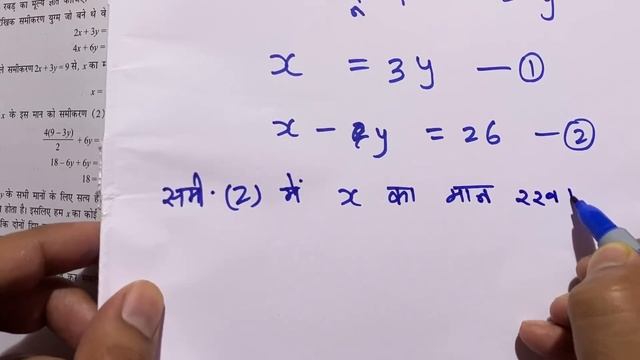 रबड़ का मूल्य ज्ञात कीजिए।
रैखिक समीकरण युग्म जो बने थे वे
2x + 3y =
4x + 6y =
ले समीकरण 2x + 3y = 9 से, x का म
x =
x के इस मान को समीकरण (2)
4(9 – 3y)/2 + 6y =
18 – 6y + 6y =
18 =
y के सभी मानों के लिए सत्य है
होता है। इसलिए हम x का कोई
कि दोनों दिए
y
x = 3y — ①
x – y = 26 — ②
समी. (2) में x का मान